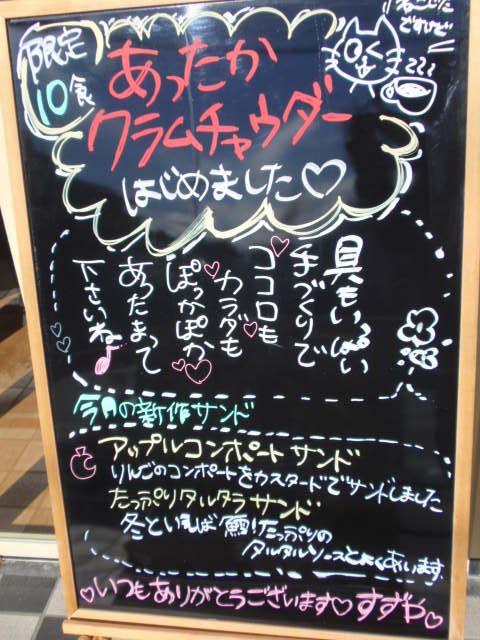 限定
10食
ねこじた
ですけど
あったか
クラムチャウダー
はじめました♡
具もいっぱい
手づくりで
ココロも
カラダも
ぽっかぽか
あったまって
下さいね♪
今月の新作サンド
アップルコンポートサンド
りんごのコンポートをカスタードでサンドしました
たっぷりタルタラサンド
冬といえば鱈!たっぷりの
タルタルソースとよくあいます
♡いつもありがとうございます♡すずや♡